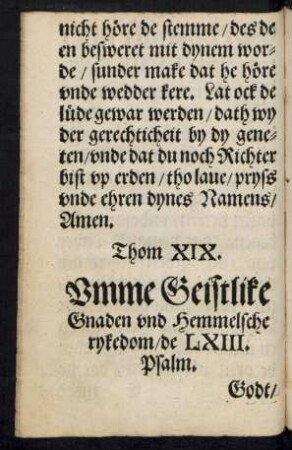 nicht höre de stemme/des de
en besweret mit dynem wor-
de/sunder make dat he höre
vnde wedder kere. Lat ock de
lüde gewar werden/dath wy
der gerechticheit by dy gene-
ten/vnde dat du noch Richter
bist vp erden/tho laue/pryss
vnde ehren dynes Namens/
Amen.
Thom XIX.
Vmme Geistlike
Gnaden vnd Hemmelsche
rykedom/de LXIII.
Psalm.
Godt/